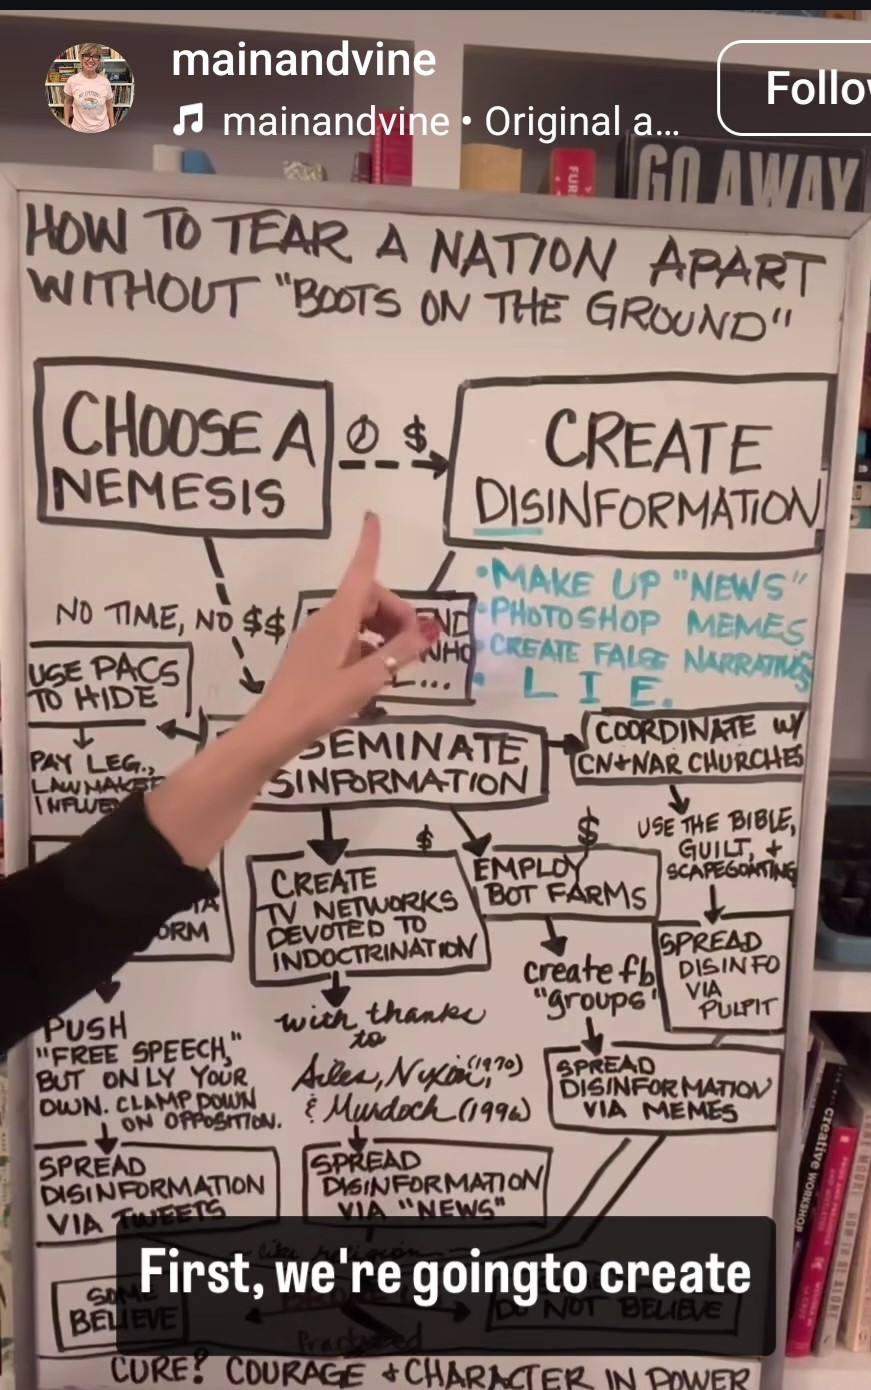 mainandvine
mainandvine • Original a...
Follo
GO AWAY
FUR
HOW TO TEAR A NATION APART
WITHOUT "BOOTS ON THE GROUND"
CHOOSE A
NEMESIS
$
CREATE
DISINFORMATION
• MAKE UP "NEWS"
• PHOTOSHOP MEMES
• CREATE FALSE NARRATIVES
• L I E.
NO TIME, NO $$
END
WHO
L...
USE PACS
TO HIDE
PAY LEG.,
LAWMAKE
INFLUE
SEMINATE
SINFORMATION
COORDINATE W/
CN+NAR CHURCHES
USE THE BIBLE,
GUILT, +
SCAPEGOATING
SPREAD
DISINFO
VIA
PULPIT
$
CREATE
TV NETWORKS
DEVOTED TO
INDOCTRINATION
$
EMPLOY
BOT FARMS
create fb
"groups"
SPREAD
DISINFORMATION
VIA MEMES
TA
ORM
PUSH
"FREE SPEECH,"
BUT ONLY YOUR
OWN. CLAMP DOWN
ON OPPOSITION.
SPREAD
DISINFORMATION
VIA TWEETS
with thanks
to
Ailes, Nixon, (1970)
& Murdoch (1996)
SPREAD
DISINFORMATION
VIA "NEWS"
like religion
SOME
BELIEVE
DO NOT BELIEVE
Practiced
First, we're goingto create
CURE? COURAGE + CHARACTER IN POWER
creative WORKSHOP